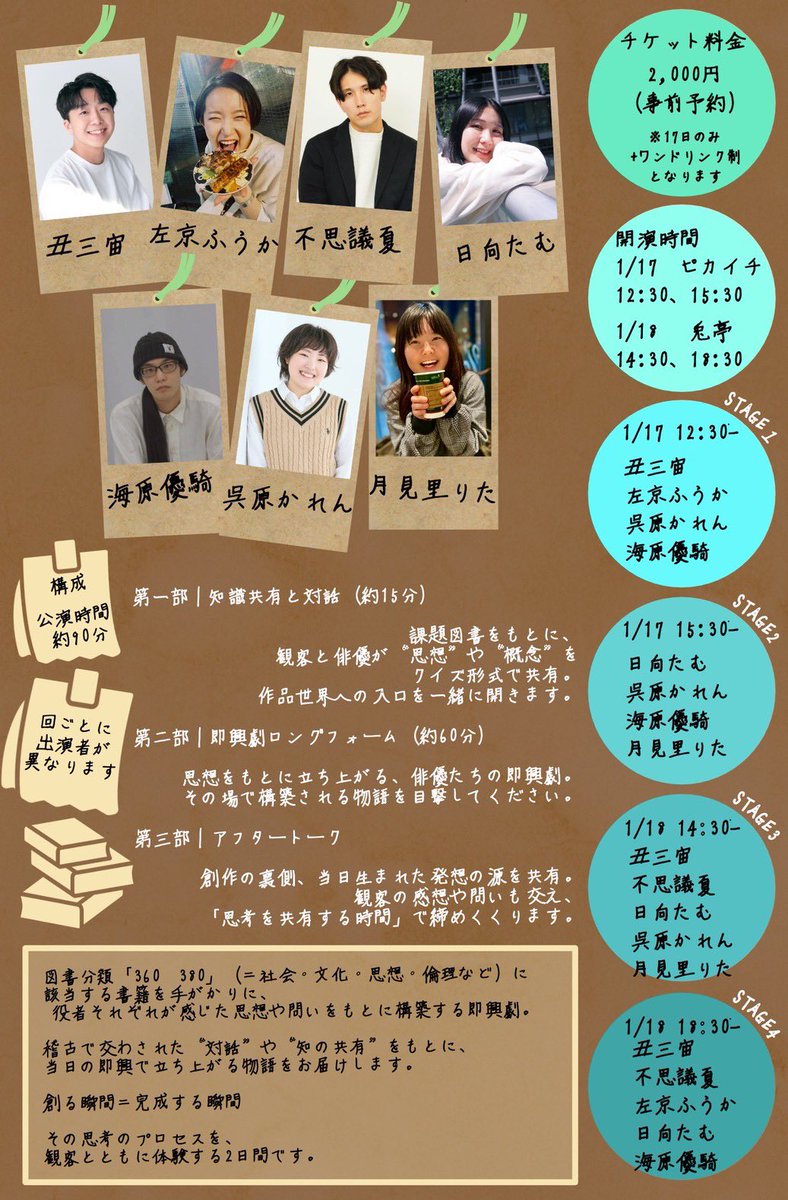 丑三宙
左京ふうか
不思議夏
日向たむ
海原優騎
呉原かれん
月見里りた
チケット料金
2,000円
(事前予約)
※17日のみ
+ワンドリンク制
となります
開演時間
1/17 ピカイチ
12:30、15:30
1/18 兎亭
14:30、18:30
STAGE1
1/17 12:30-
丑三宙
左京ふうか
呉原かれん
海原優騎
STAGE2
1/17 15:30-
日向たむ
呉原かれん
海原優騎
月見里りた
STAGE3
1/18 14:30-
丑三宙
不思議夏
日向たむ
呉原かれん
月見里りた
STAGE4
1/18 18:30-
丑三宙
不思議夏
左京ふうか
日向たむ
海原優騎
構成
公演時間
約90分
回ごとに
出演者が
異なります
第一部|知識共有と対話(約15分)
課題図書をもとに、
観客と俳優が“思想”や“概念”を
クイズ形式で共有。
作品世界への入口を一緒に開きます。
第二部|即興劇ロングフォーム(約60分)
思想をもとに立ち上がる、俳優たちの即興劇。
その場で構築される物語を目撃してください。
第三部|アフタートーク
創作の裏側、当日生まれた発想の源を共有。
観客の感想や問いも交え、
「思考を共有する時間」で締めくくります。
図書分類「360 380」(=社会・文化・思想・倫理など)に
該当する書籍を手がかりに、
役者それぞれが感じた思想や問いをもとに構築する即興劇。
稽古で交わされた“対話”や“知の共有”をもとに、
当日の即興で立ち上がる物語をお届けします。
創る瞬間=完成する瞬間
その思考のプロセスを、
観客とともに体験する2日間です。